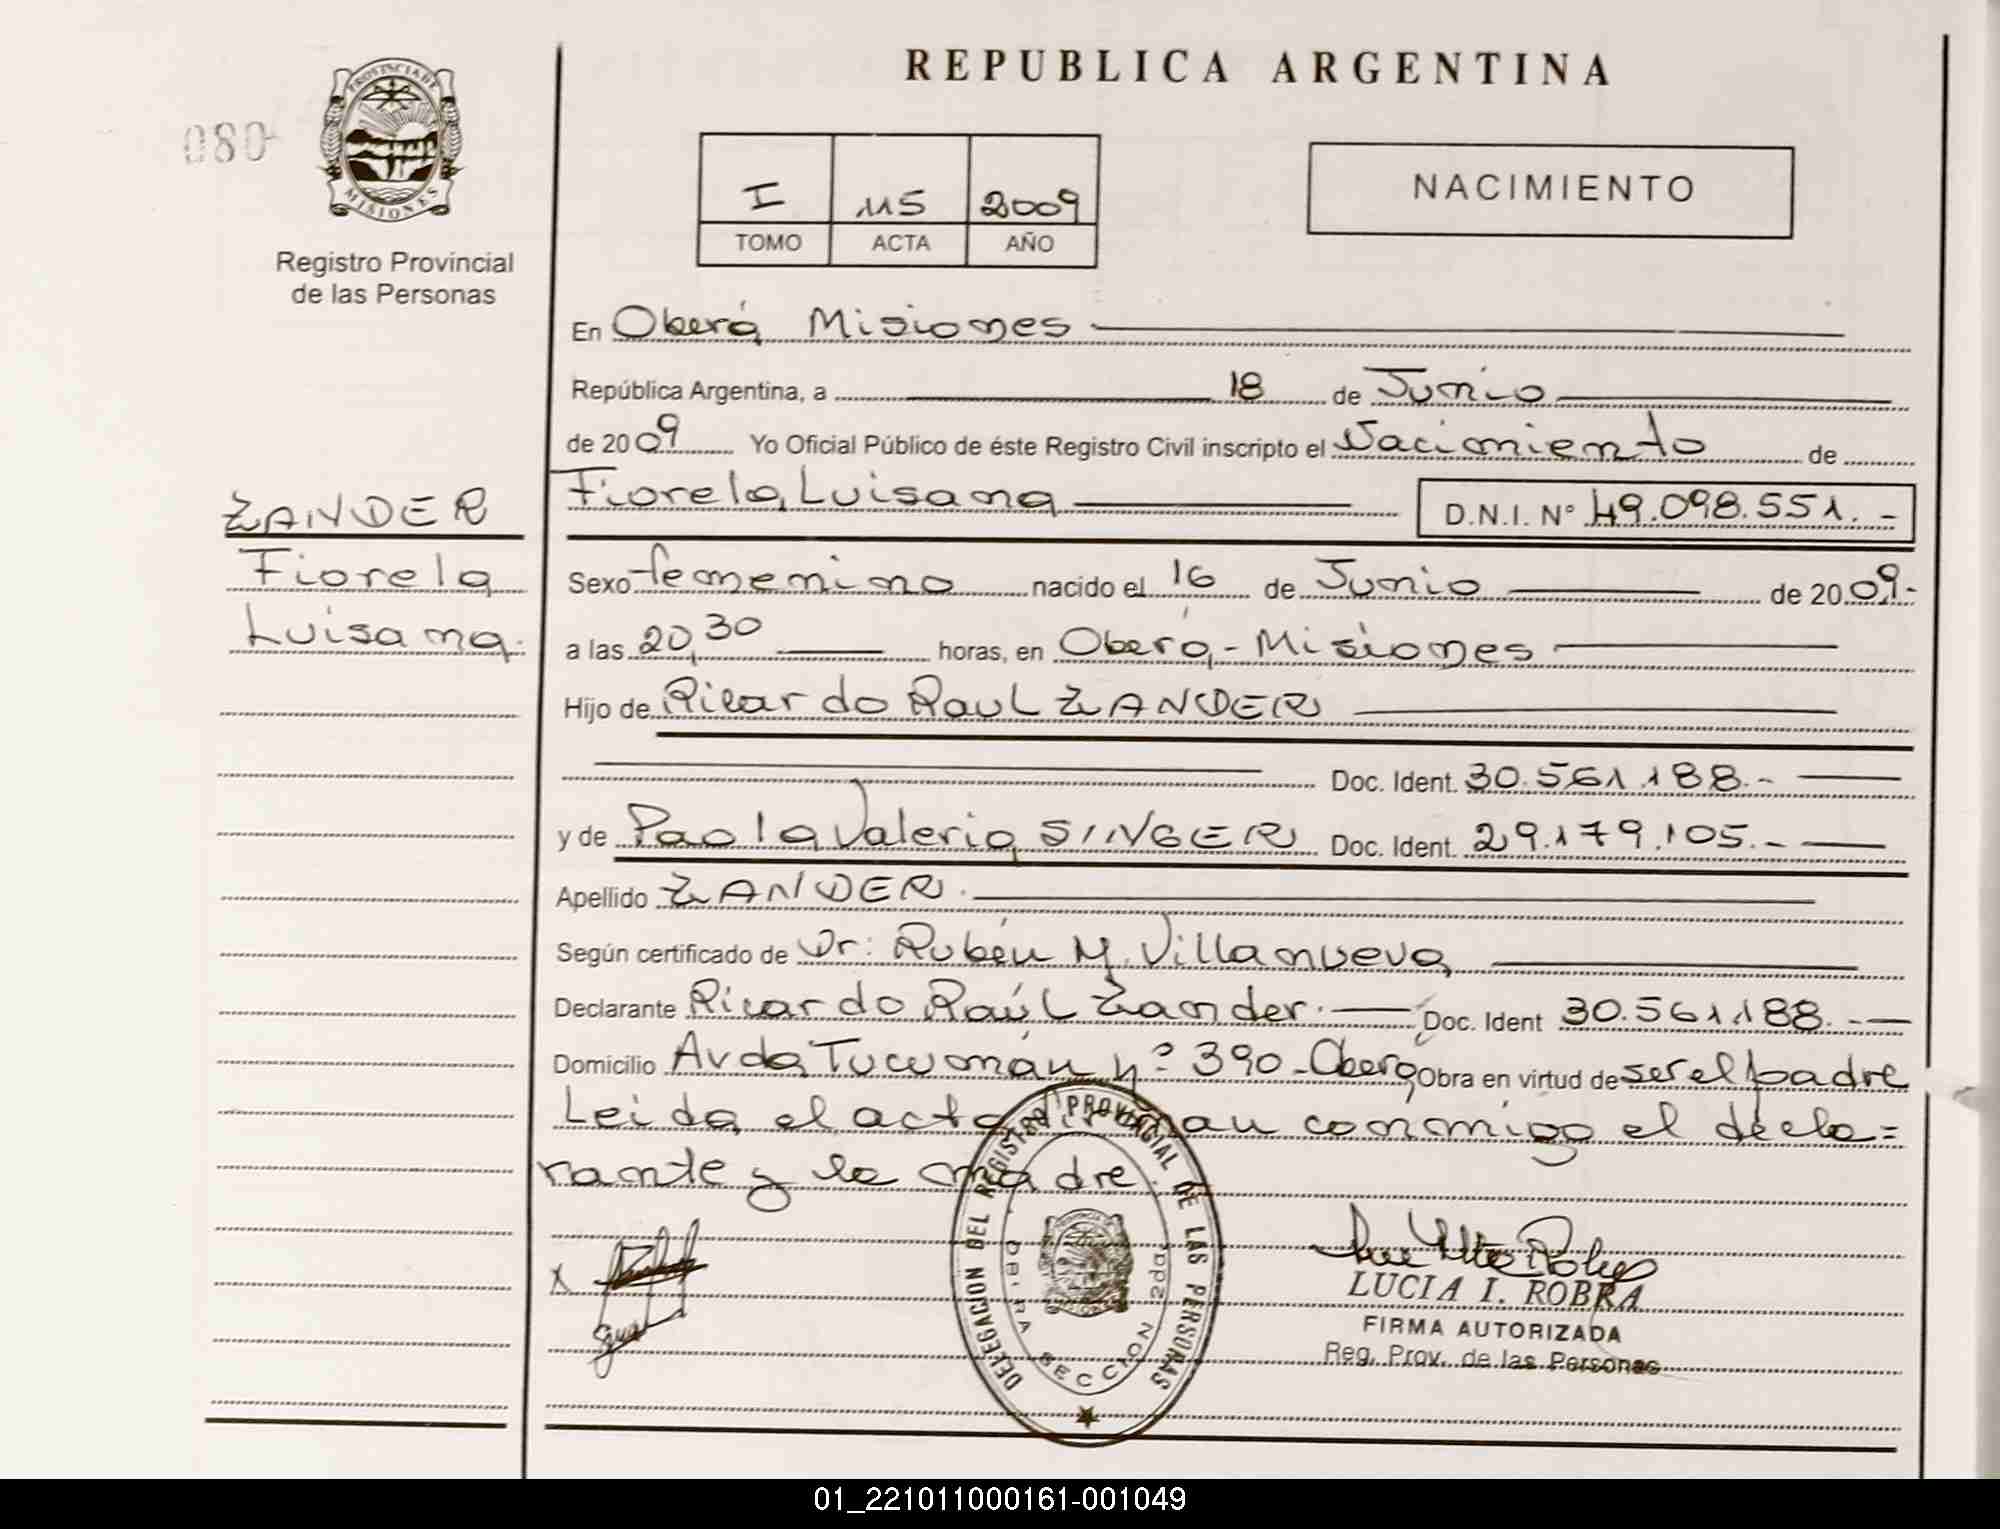 080
PROVINCIA DE
MISIONES
Registro Provincial
de las Personas
REPUBLICA ARGENTINA
I 115 2009
TOMO ACTA AÑO
NACIMIENTO
En Oberá Misiones
República Argentina, a 18 de Junio
de 2009 Yo Oficial Público de éste Registro Civil inscripto el Nacimiento de
Fiorela Luisana D.N.I. N° 49.098.551.-
ZANDER
Fiorela
Luisana.
Sexo femenino nacido el 16 de Junio de 2009.-
a las 20,30 horas, en Oberá - Misiones
Hijo de Ricardo Raul ZANDER
Doc. Ident. 30.561.188.-
y de Paola Valeria SINGER Doc. Ident. 29.179.105.-
Apellido ZANDER.
Según certificado de Dr: Rubén M. Villanueva
Declarante Ricardo Raúl Zander. Doc. Ident 30.561.188.-
Domicilio Avda Tucumán nº 390 - Oberá Obra en virtud de ser el padre
Leida el acta firman conmigo el decla=
rante y la madre.
X
DELEGACION DEL REGISTRO PROVINCIAL DE LAS PERSONAS
OBERA SECCION 2da
LUCIA I. ROBRA
FIRMA AUTORIZADA
Reg. Prov. de las Personas
01_221011000161-001049